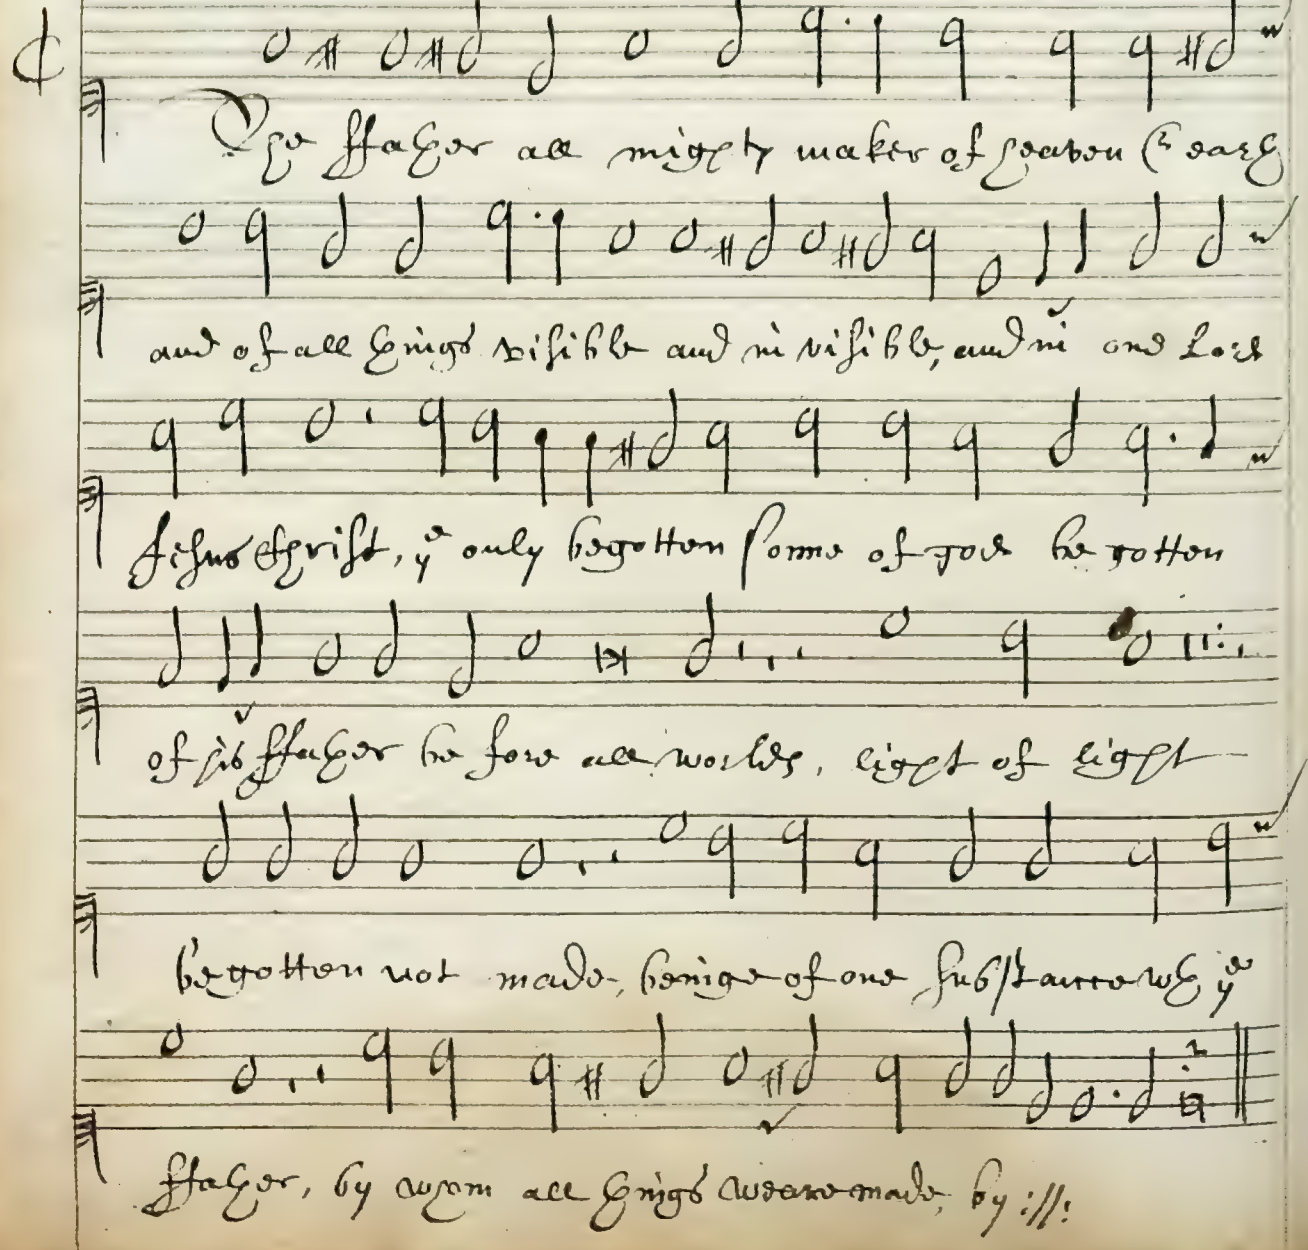 The ffather all mighty maker of heaven & earth
and of all things visible and in visible, and in one Lord
Jesus Christ, yᵉ only begotten sonne of god be gotten
of his ffather be fore all worlds, light of light
begotten not made, beinge of one substance wth yᵉ
ffather, by whom all things weare made, by ://: